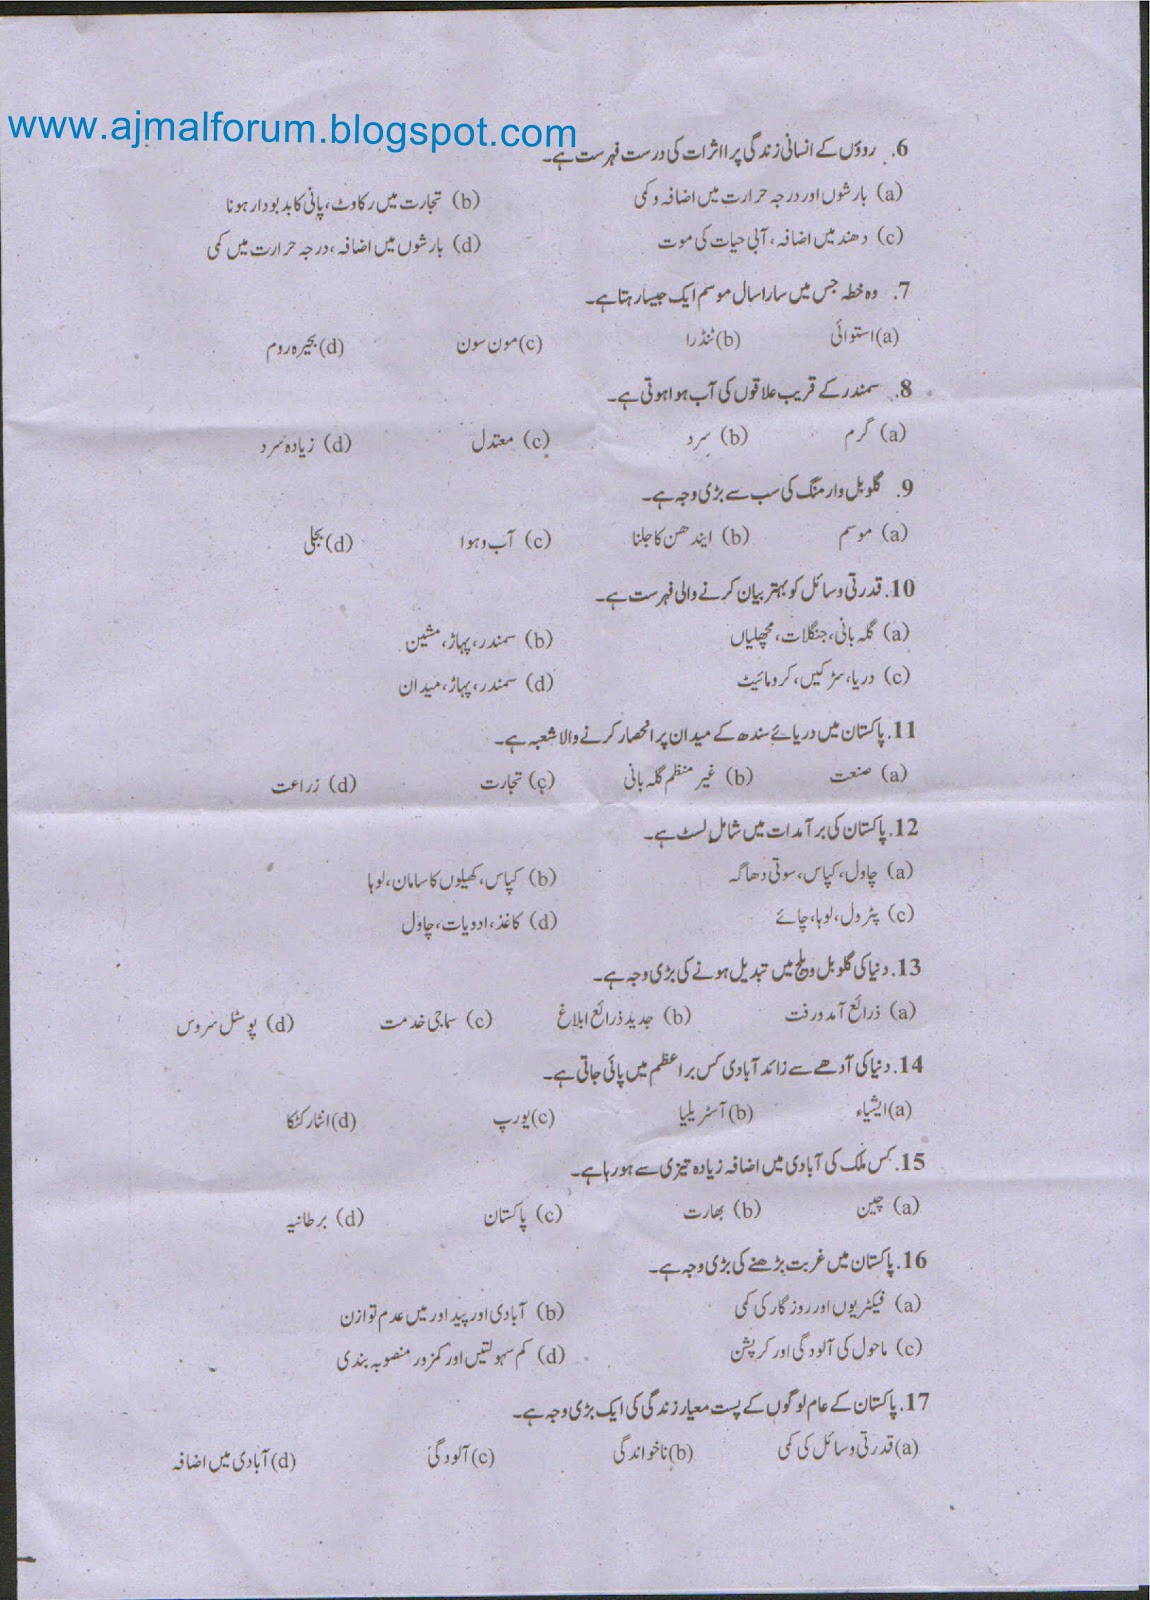 www.ajmalforum.blogspot.com
6. روؤں کے انسانی زندگی پر ااثرات کی درست فہرست ہے۔
(a) بارشوں اور درجہ حرارت میں اضافہ و کمی (b) تجارت میں رکاوٹ، پانی کا بدبودار ہونا
(c) دھند میں اضافہ، آبی حیات کی موت (d) بارشوں میں اضافہ، درجہ حرارت میں کمی
7. وہ خطہ جس میں سارا سال موسم ایک جیسا رہتا ہے۔
(a) استوائی (b) ٹنڈرا (c) مون سون (d) بحیرہ روم
8. سمندر کے قریب علاقوں کی آب ہوا ہوتی ہے۔
(a) گرم (b) سرد (c) معتدل (d) زیادہ سرد
9. گلوبل وارمنگ کی سب سے بڑی وجہ ہے۔
(a) موسم (b) ایندھن کا جلنا (c) آب و ہوا (d) بجلی
10. قدرتی وسائل کو بہتر بیان کرنے والی فہرست ہے۔
(a) گلہ بانی، جنگلات، مچھلیاں (b) سمندر، پہاڑ، مشین
(c) دریا، سڑکیں، کرومائیٹ (d) سمندر، پہاڑ، میدان
11. پاکستان میں دریائے سندھ کے میدان پر انحصار کرنے والا شعبہ ہے۔
(a) صنعت (b) غیر منظم گلہ بانی (c) تجارت (d) زراعت
12. پاکستان کی برآمدات میں شامل لسٹ ہے۔
(a) چاول، کپاس، سوتی دھاگہ (b) کپاس، کھیلوں کا سامان، لوہا
(c) پٹرول، لوہا، چائے (d) کاغذ، ادویات، چاول
13. دنیا کی گلوبل ویلج میں تبدیل ہونے کی بڑی وجہ ہے۔
(a) ذرائع آمدورفت (b) جدید ذرائع ابلاغ (c) سماجی خدمت (d) پوسٹل سروس
14. دنیا کی آدھے سے زائد آبادی کس براعظم میں پائی جاتی ہے۔
(a) ایشیاء (b) آسٹریلیا (c) یورپ (d) انٹارکٹکا
15. کس ملک کی آبادی میں اضافہ زیادہ تیزی سے ہو رہا ہے۔
(a) چین (b) بھارت (c) پاکستان (d) برطانیہ
16. پاکستان میں غربت بڑھنے کی بڑی وجہ ہے۔
(a) فیکٹریوں اور روزگار کی کمی (b) آبادی اور پیداور میں عدم توازن
(c) ماحول کی آلودگی اور کرپشن (d) کم سہولتیں اور کمزور منصوبہ بندی
17. پاکستان کے عام لوگوں کے پست معیار زندگی کی ایک بڑی وجہ ہے۔
(a) قدرتی وسائل کی کمی (b) ناخواندگی (c) آلودگی (d) آبادی میں اضافہ